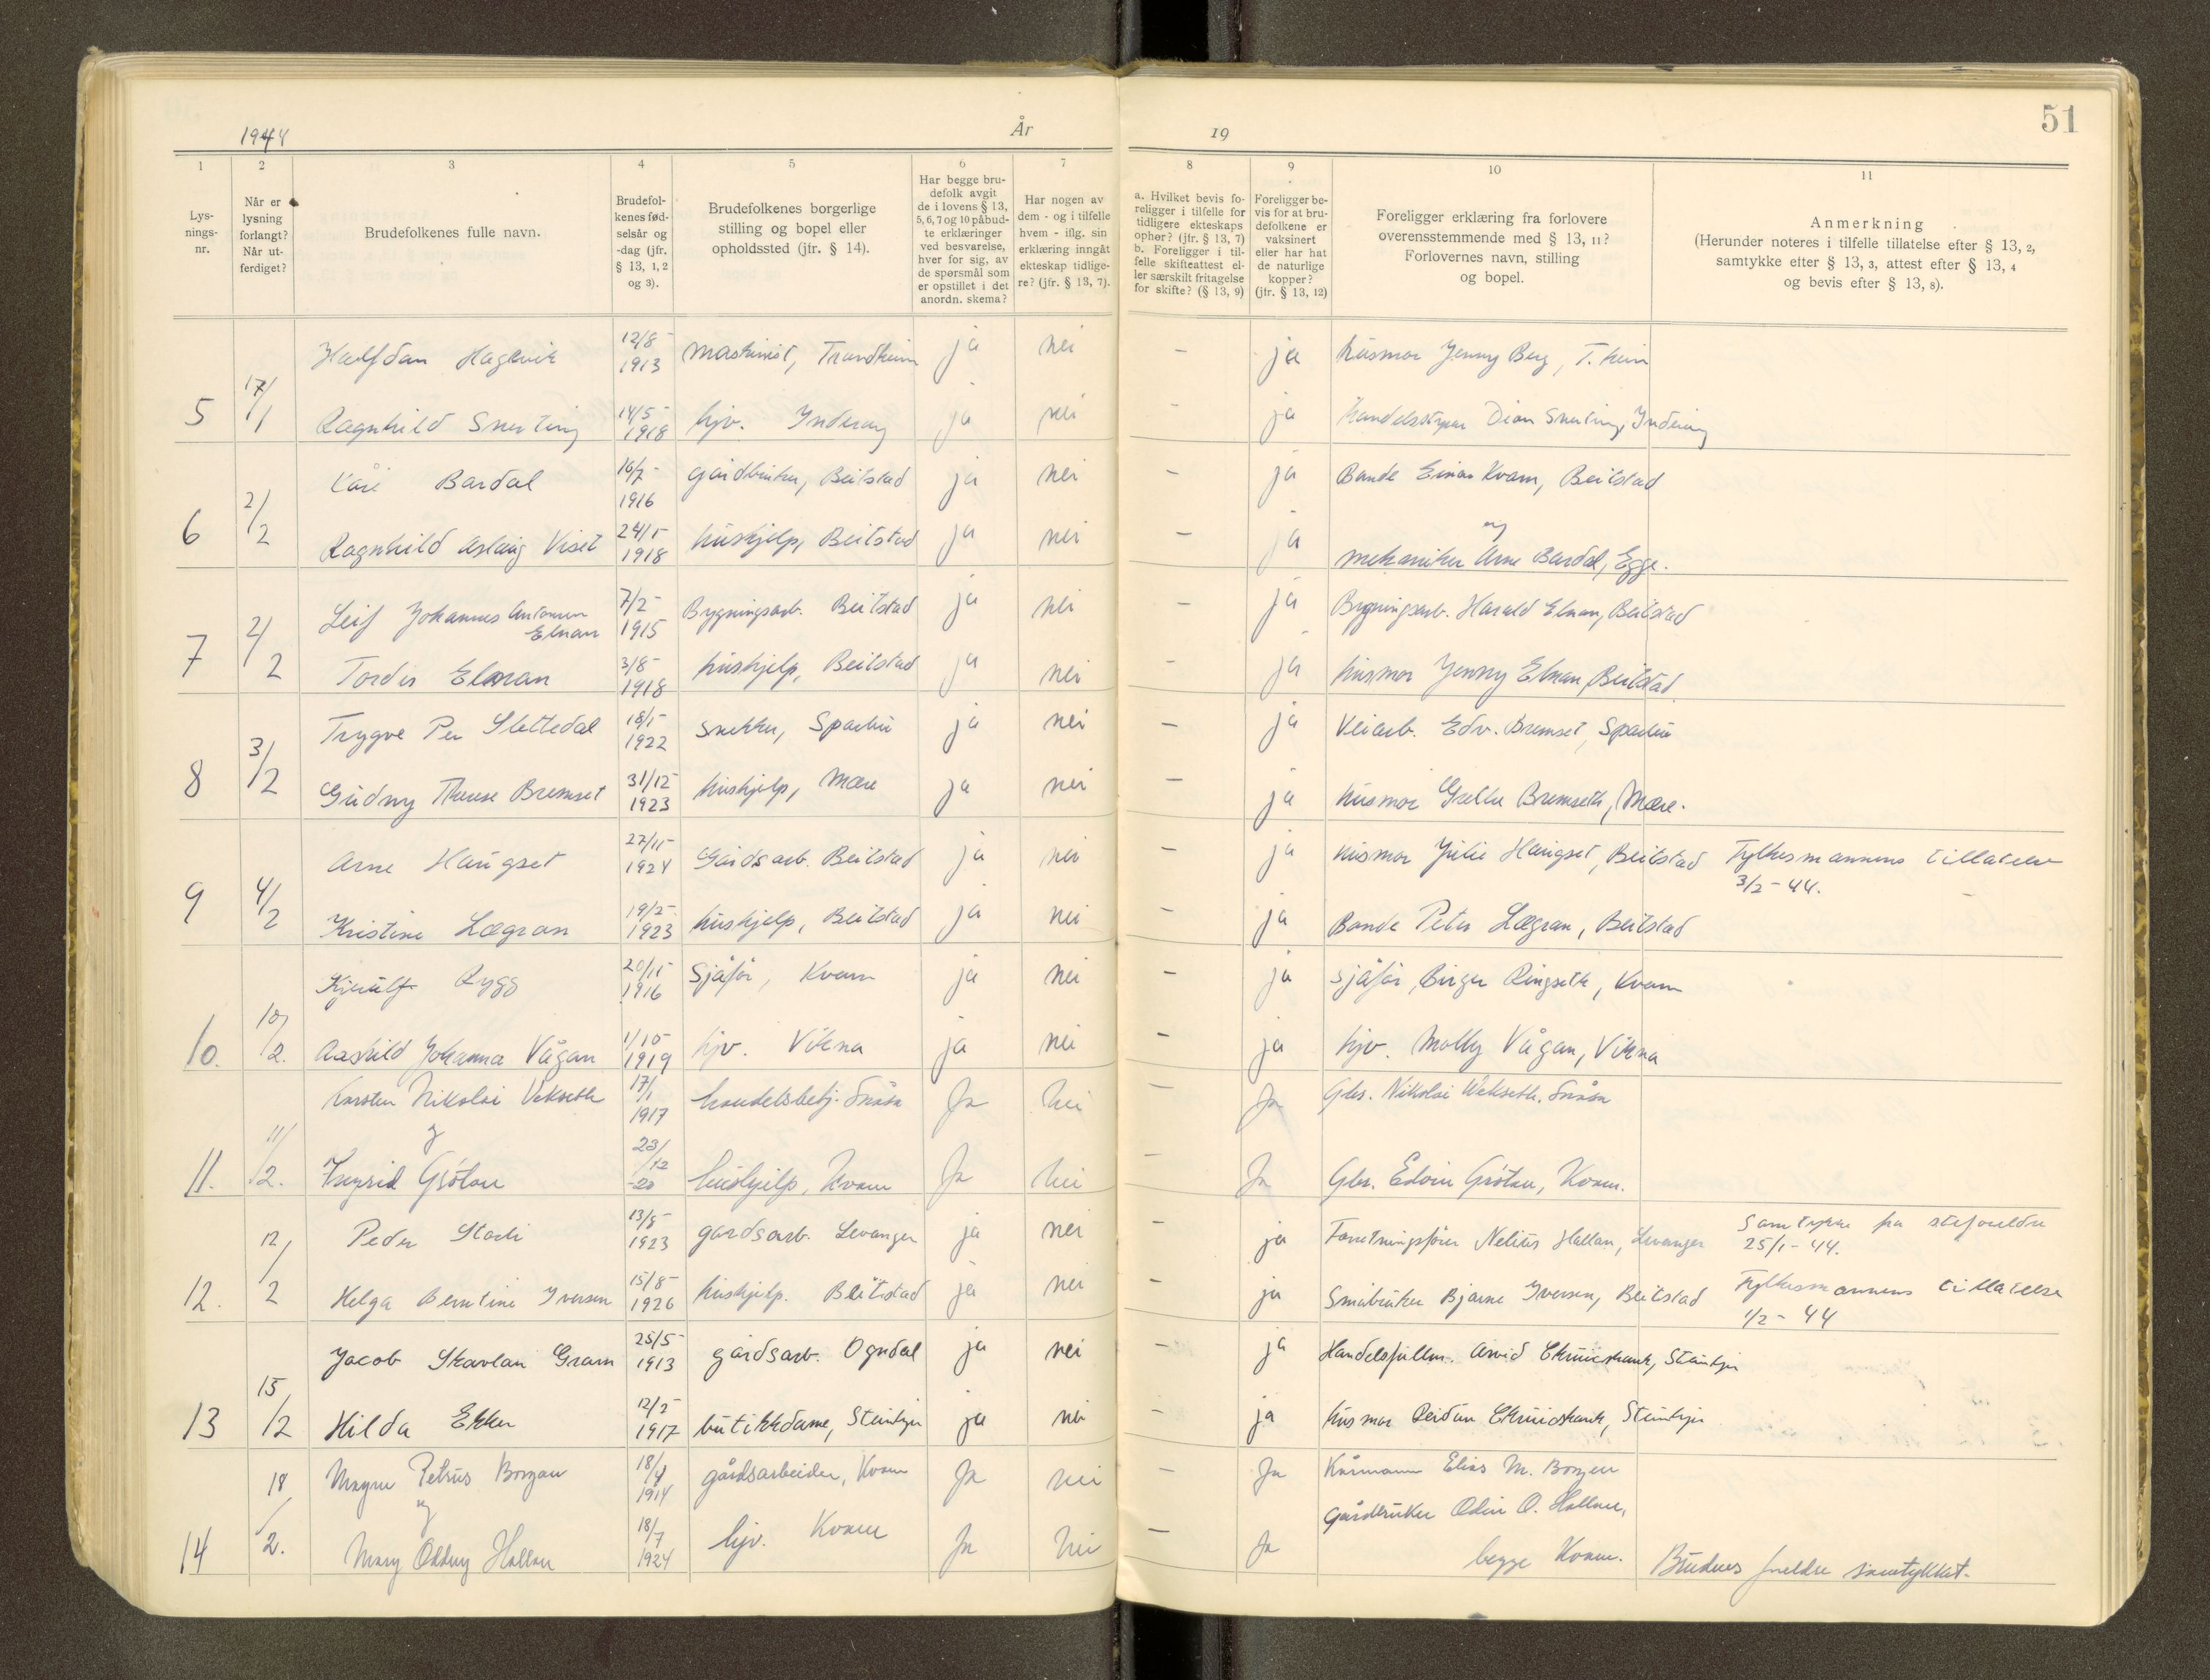 51
1944 År 19
1 2 3 4 5 6 7 8 9 10 11
Lys-
nings-
nr.
Når er
lysning
forlangt?
Når ut-
ferdiget?
Brudefolkenes fulle navn.
Brudefol-
kenes fød-
selsår og
-dag (jfr.
§ 13, 1, 2
og 3).
Brudefolkenes borgerlige
stilling og bopel eller
opholdssted (jfr. § 14).
Har begge bru-
defolk avgit
de i lovens § 13,
5, 6, 7 og 10 påbud-
te erklæringer
ved besvarelse,
hver for sig, av
de spørsmål som
er opstillet i det
anordn. skema?
Har nogen av
dem - og i tilfelle
hvem - iflg. sin
erklæring inngått
ekteskap tidlige-
re? (jfr. § 13, 7).
a. Hvilket bevis fo-
religger i tilfelle for
tidligere ekteskaps
ophør? (jfr. § 13, 7)
b. Foreligger i til-
felle skifteattest el-
ler særskilt fritagelse
for skifte? (§ 13, 9)
Foreligger be-
vis for at bru-
defolkene er
vaksinert
eller har hat
de naturlige
kopper?
(jfr. § 13, 12)
Foreligger erklæring fra forlovere
overensstemmende med § 13, 11?
Forlovernes navn, stilling
og bopel.
Anmerkning
(Herunder noteres i tilfelle tillatelse efter § 13, 2,
samtykke efter § 13, 3, attest efter § 13, 4
og bevis efter § 13, 8).
Halfdan 12/8- 1913 maskinist, Trondheim ja nei - ja husmor Jenny Berg, T.heim
5 17/1 Ragnhild 14/5- 1918 hjv. Inderøy ja nei - ja Inderøy
Kåre Bardal 16/7- 1916 gårdbruker, Beitstad ja nei - ja Bonde Einar Kvam, Beitstad
6 2/2 Ragnhild Aslaug Viset 24/1- 1918 hushjelp, Beitstad ja nei - ja og
mekaniker Arne Bardal, Egge.
Leif Johannes Antonsen
Elnan 7/2- 1915 Bygningsarb. Beitstad ja nei - ja Bygningsarb. Harald Elnan, Beitstad
7 2/2 Tordis Elnan 3/8- 1918 hushjelp, Beitstad ja nei - ja husmor Jenny Elnan, Beitstad
Trygve Per Slettedal 18/1- 1922 snekker, Sparbu ja nei - ja Veiarb. Edv. Bremset, Sparbu
8 3/2 Gudny Therese Bremset 31/12- 1923 hushjelp, Mære ja nei - ja husmor Bremseth, Mære.
Arne Haugset 27/11- 1924 Gårdsarb. Beitstad ja nei - ja husmor Julie Haugset, Beitstad Fylkesmannens tillatelse
3/2-44.
9 4/2 Kristine Lægran 19/2- 1923 hushjelp, Beitstad ja nei - ja Bonde Peter Lægran, Beitstad
Rygg 20/11- 1916 Sjåfør, Kvam ja nei - ja Sjåfør Birger Ringseth, Kvam
10. 10/2. Aashild Johanna Vågan 1/10- 1919 hjv. Vikna ja nei - ja hjv. Molly Vågan, Vikna
Karsten Nikolai Vekseth 17/1 1917 handelsbetj. Snåsa Ja nei - Ja Gbr. Nikolai Wekseth, Snåsa
og
11. 11/2. Ingrid Grötan 23/12 -20 hushjelp, Kvam Ja nei - Ja Gbr. Edvin Grötan, Kvam.
Peder 13/8- 1923 gårdsarb. Levanger ja nei - ja Forretningsfører Hallan, Levanger Samtykke fra
25/1-44.
12. 12/2 Helga Berntine Iversen 15/8- 1926 hushjelp. Beitstad ja nei - ja Småbruker Bjarne Iversen, Beitstad Fylkesmannens tillatelse
1/2-44
Jacob Skavlan Gram 25/5- 1913 gårdsarb. Ogndal ja nei - ja Arvid Cruickshank, Steinkjer
13 15/2 Hilda Ekker 12/2- 1917 butikkdame, Steinkjer ja nei - ja husmor Reidun Cruickshank, Steinkjer
Magne Petrus Borgan 18/4 1914 gårdsarbeider, Kvam Ja nei Ja Kårmann Elias M. Borgen
og
gårdbruker Odin O. Hallan,
14 18/2. Mary Oddny Hallan 18/7 1924 hjv. Kvam Ja nei - Ja begge Kvam. Brudens foreldre samtykket.